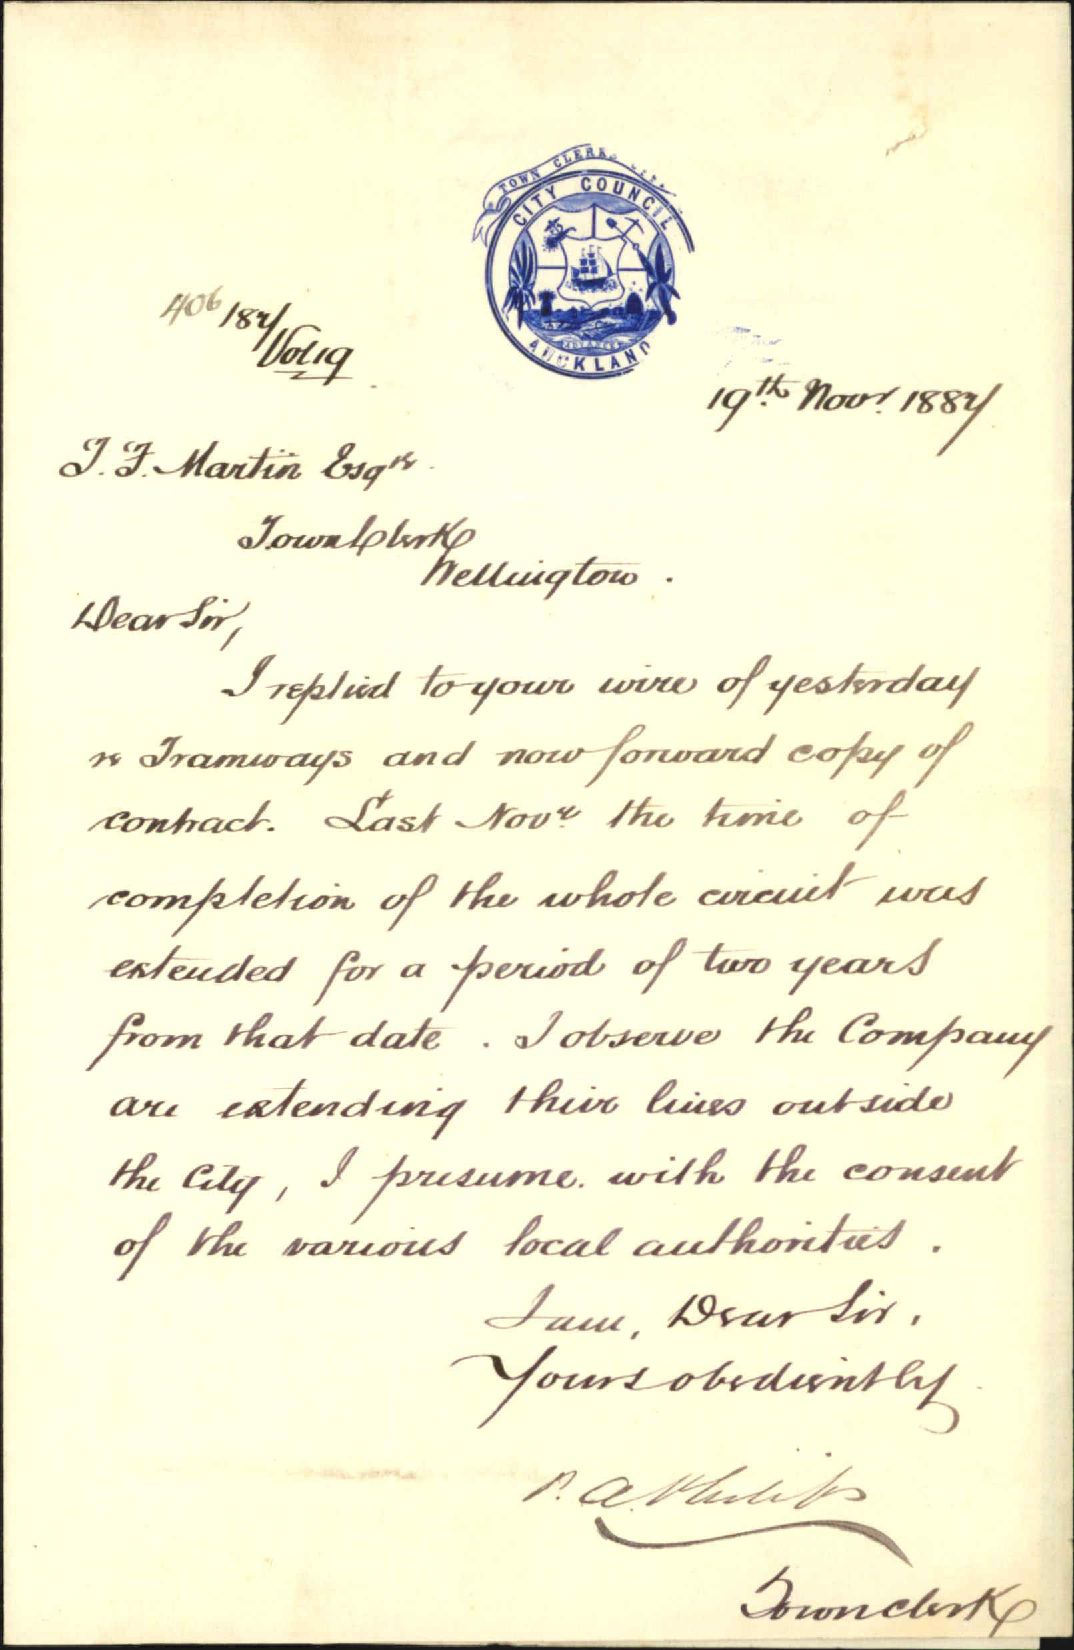 TOWN CLERKS
CITY COUNCIL
AUCKLAND
406/87
Vol 19
19th Novr. 1887
J. F. Martin Esqre.
Town Clerk
Wellington.
Dear Sir,
I replied to your wire of yesterday
re Tramways and now forward copy of
contract. Last Novr. the time of
completion of the whole circuit was
extended for a period of two years
from that date. I observe the Company
are extending their lines outside
the City, I presume with the consent
of the various local authorities.
I am, Dear Sir,
Yours obediently
P. A. Philips
Town Clerk